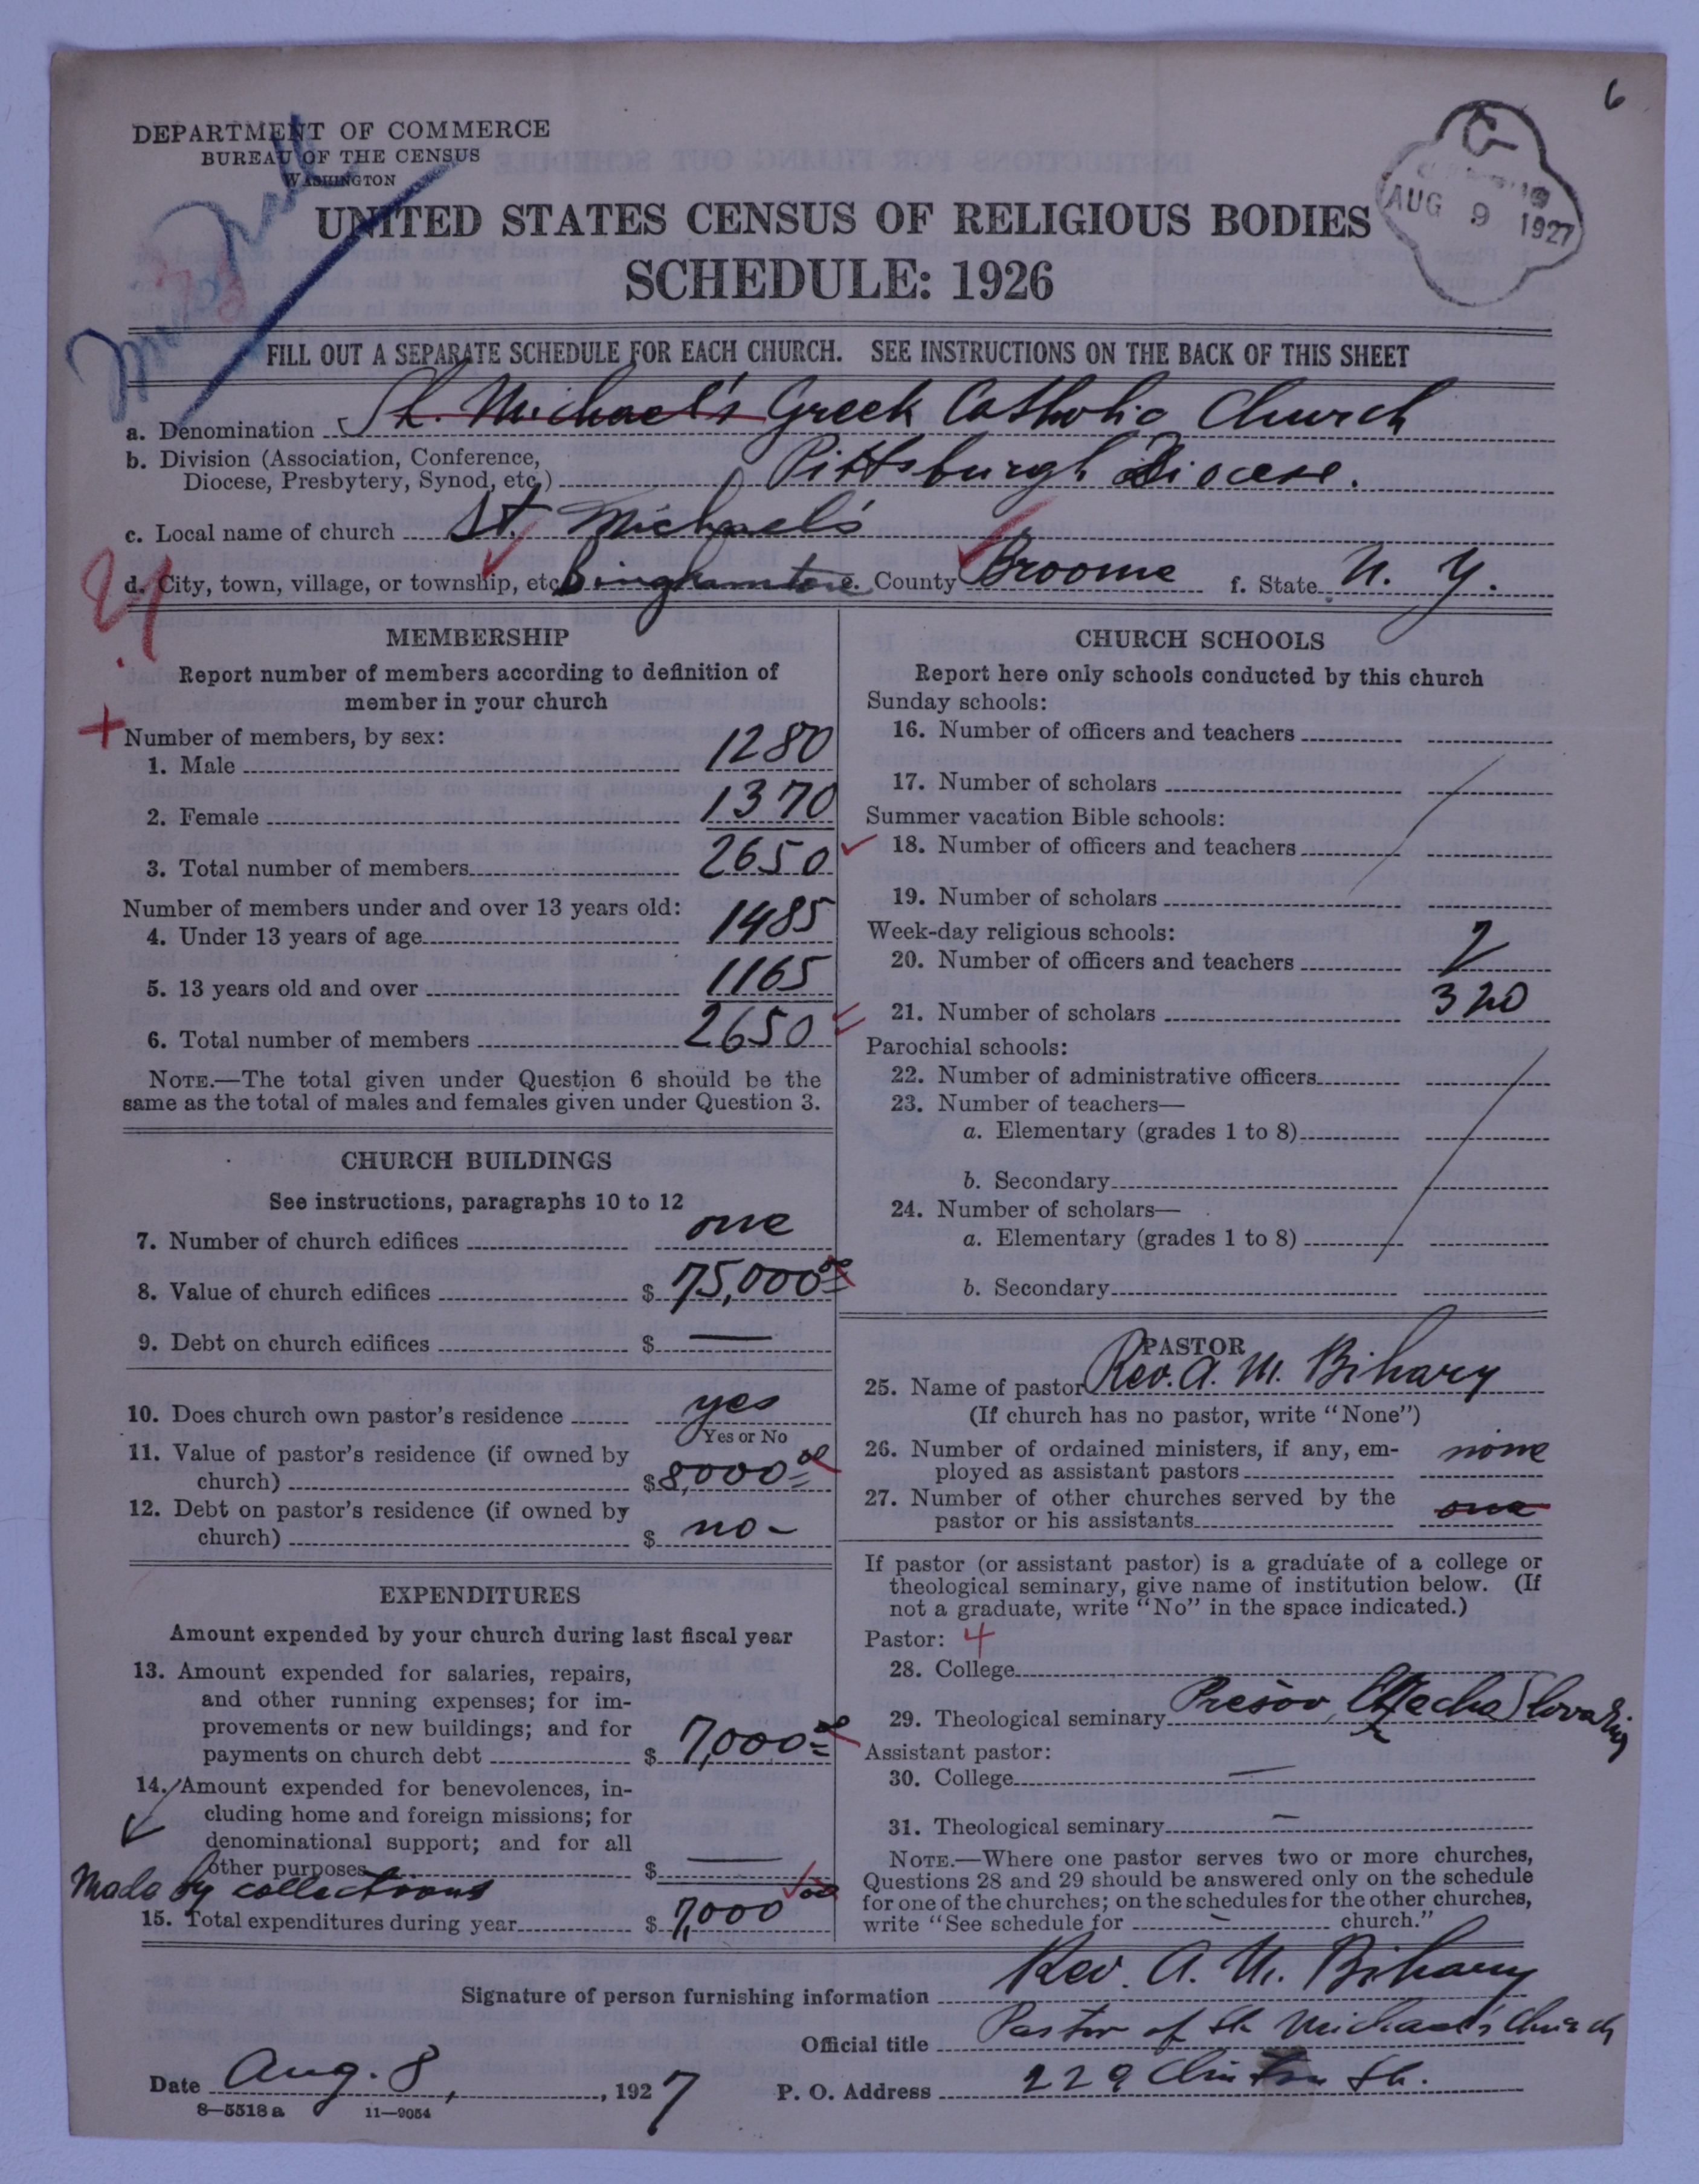 6
DEPARTMENT OF COMMERCE
BUREAU OF THE CENSUS
WASHINGTON
AUG 9 1927
UNITED STATES CENSUS OF RELIGIOUS BODIES
SCHEDULE: 1926
FILL OUT A SEPARATE SCHEDULE FOR EACH CHURCH. SEE INSTRUCTIONS ON THE BACK OF THIS SHEET
a. Denomination St. Michael's Greek Catholic Church
b. Division (Association, Conference,
Diocese, Presbytery, Synod, etc.) Pittsburgh Diocese.
c. Local name of church St. Michael's
d. City, town, village, or township, etc. Binghamton e. County Broome f. State N. Y.
MEMBERSHIP
Report number of members according to definition of
member in your church
Number of members, by sex:
1. Male 1280
2. Female 1370
3. Total number of members 2650
Number of members under and over 13 years old:
4. Under 13 years of age 1485
5. 13 years old and over 1165
6. Total number of members 2650
NOTE.—The total given under Question 6 should be the
same as the total of males and females given under Question 3.
CHURCH BUILDINGS
See instructions, paragraphs 10 to 12
7. Number of church edifices one
8. Value of church edifices $ 75,000 00
9. Debt on church edifices $ —
10. Does church own pastor's residence yes
Yes or No
11. Value of pastor's residence (if owned by
church) $ 8,000 00
12. Debt on pastor's residence (if owned by
church) $ no-
EXPENDITURES
Amount expended by your church during last fiscal year
13. Amount expended for salaries, repairs,
and other running expenses; for im-
provements or new buildings; and for
payments on church debt $ 7,000 00
14. Amount expended for benevolences, in-
cluding home and foreign missions; for
denominational support; and for all
other purposes $ —
Made by collections
15. Total expenditures during year $ 7,000 00
CHURCH SCHOOLS
Report here only schools conducted by this church
Sunday schools:
16. Number of officers and teachers
17. Number of scholars
Summer vacation Bible schools:
18. Number of officers and teachers
19. Number of scholars
Week-day religious schools:
20. Number of officers and teachers 2
21. Number of scholars 320
Parochial schools:
22. Number of administrative officers
23. Number of teachers—
a. Elementary (grades 1 to 8)
b. Secondary
24. Number of scholars—
a. Elementary (grades 1 to 8)
b. Secondary
PASTOR
25. Name of pastor Rev. A. M. Bihary
(If church has no pastor, write "None")
26. Number of ordained ministers, if any, em-
ployed as assistant pastors none
27. Number of other churches served by the
pastor or his assistants one
If pastor (or assistant pastor) is a graduate of a college or
theological seminary, give name of institution below. (If
not a graduate, write "No" in the space indicated.)
Pastor: 4
28. College
29. Theological seminary Presov,
Assistant pastor:
30. College —
31. Theological seminary —
NOTE.—Where one pastor serves two or more churches,
Questions 28 and 29 should be answered only on the schedule
for one of the churches; on the schedules for the other churches,
write "See schedule for — church."
Signature of person furnishing information Rev. A. M. Bihary
Official title Pastor of St. Michael's Church
Date Aug. 8, 1927 P. O. Address 229 Clinton St.
8—5518a 11—9054